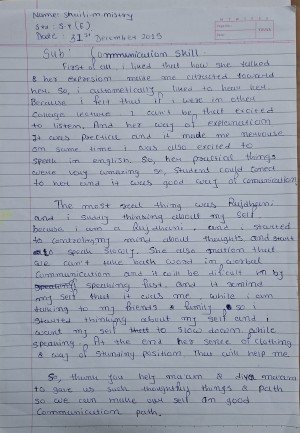 Name: Shruti.m.mistry
Std: S.Y (E)
Date: 31st December 2015
Sub: Communication Skill.
First of all, i liked that how she talked
& her expression make me attracted toward
her. So, i automatically liked to hear her.
Because i felt that if i were in other
collage lecture I can't be that excited
to listen. And her way of explaination
It was practical and it made me nervouse
on same time i was also excited to
speak in english. So, her practical things
were very amazing so, student could connect
to her and it was good way of comunication
The most real thing was Rajdhani
and i sunny thinking about my self
because i am a Rajdhani. and i started
to controling my mind about thoughts, and start
to speak slowly. She also mention that
we can't take back word in verbal
Communication and it will be dificult in by
speaking first. and it remind
my self that it was me while i am
talking to my friends & family. so
Started thinking about my self and i
want my self to slow down while
speaking. At the end her sense of clothing
& way of standing position that will help me
So, thank you help ma'am & ma'am
to gave us such thoughtfuly things & path
so we can make our self an good
Communication path.